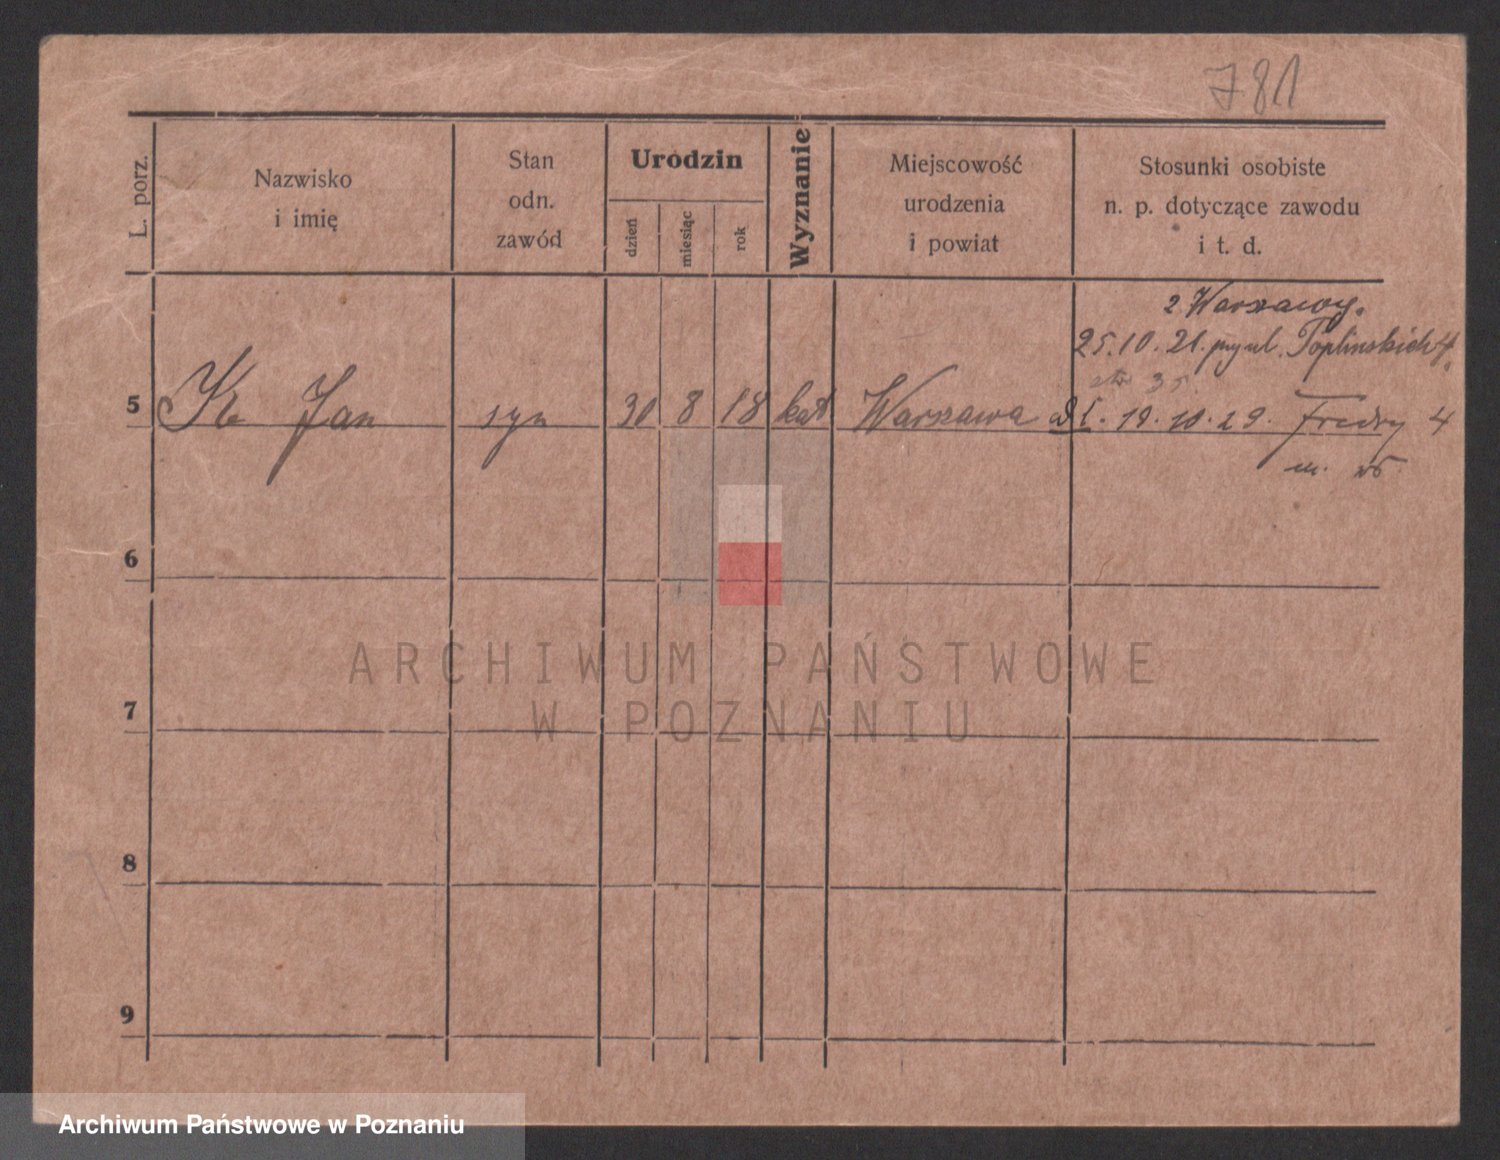 781
L. porz.
Nazwisko
i imię
Stan
odn.
zawód
Urodzin
dzień
miesiąc
rok
Wyznanie
Miejscowość
urodzenia
i powiat
Stosunki osobiste
n. p. dotyczące zawodu
i t. d.
z Warszawy.
25.10.21. Toplinskich 4.
35.
5 Jan syn 30 8 18 kat Warszawa 19.10.29. Fredry 4
m.
6
7
8
9
ARCHIWUM PAŃSTWOWE
W POZNANIU
Archiwum Państwowe w Poznaniu